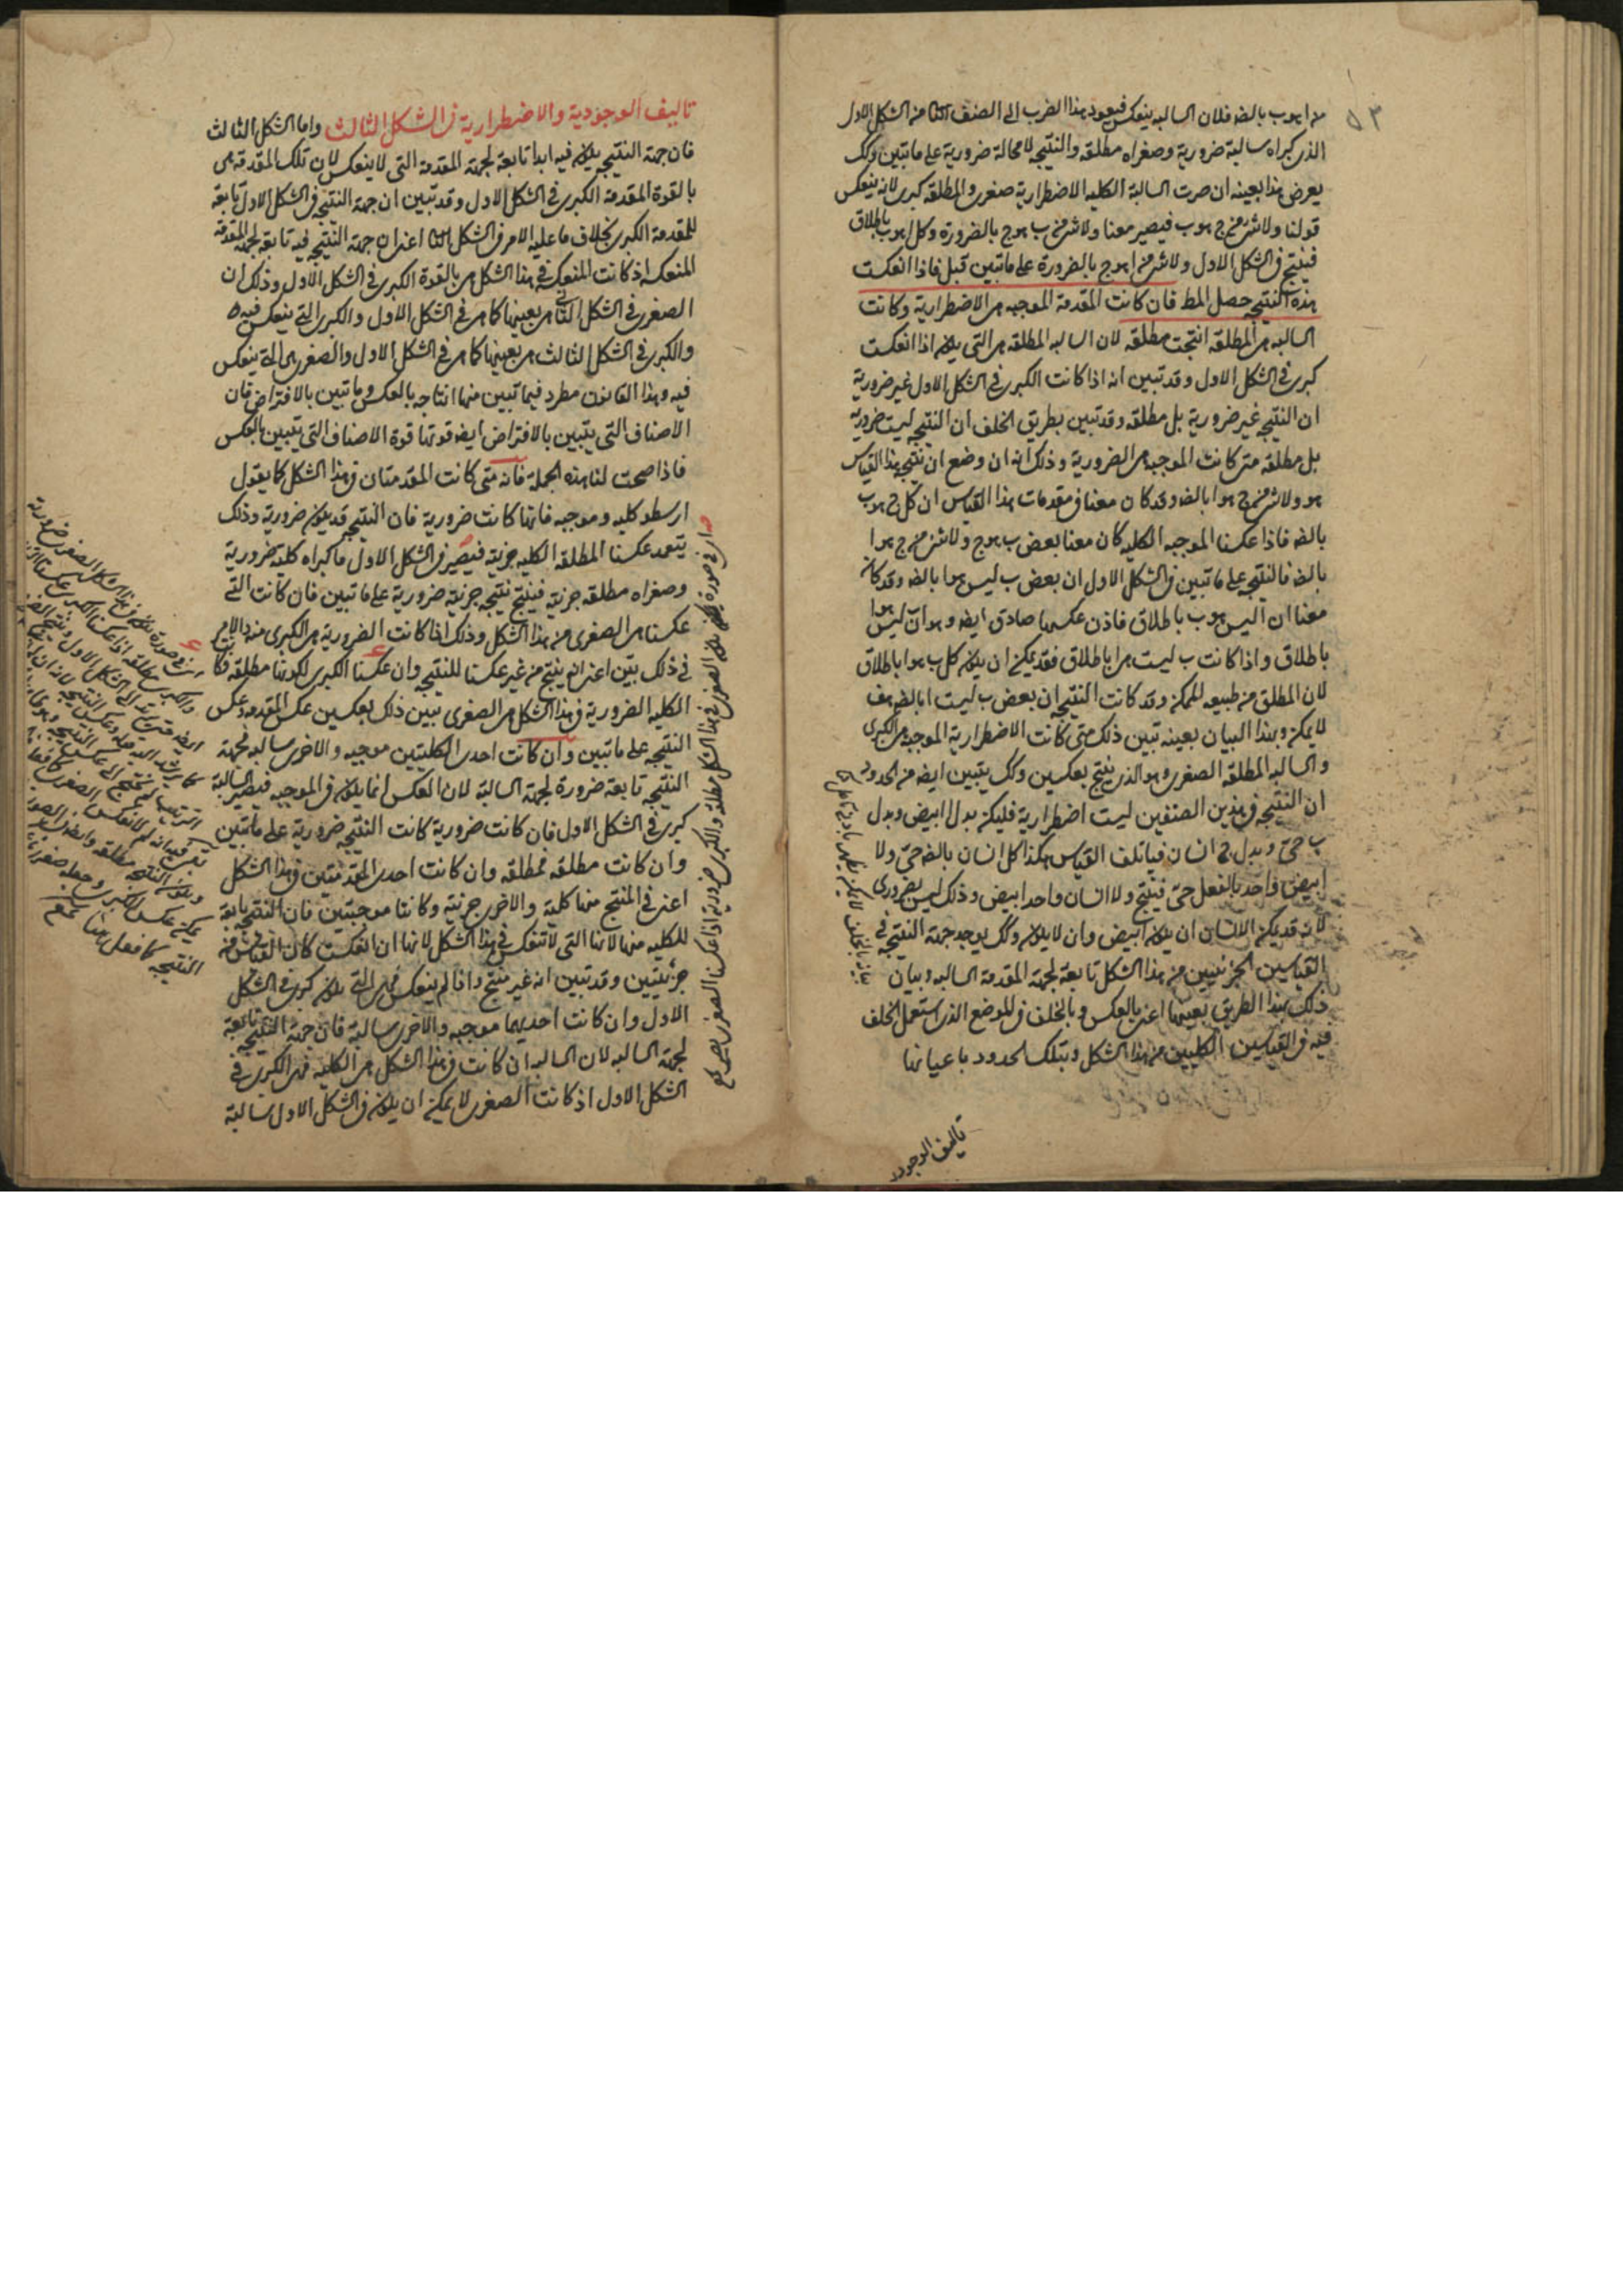 ٥٣
من ا هو ب بالضه فلان السالبه ينعكس فيعود هذا الضرب الى الصنف الثا من الشكل الاول
الذى كبراه سالبة ضرورية وصغراه مطلقه والنتيجه لا محالة ضرورية على ما تبين وكك
يعرض هذا بعينه ان صرت السالبة الكليه الاضطرارية صغرى والمطلقه كبرى لانه ينعكس
قولنا ولا شى من ج هو ب فيصير معنا ولا شى من ب هو ج بالضرورة وكل ا هو ب باطلاق
فينتج فى الشكل الاول ولا شى من ا هو ج بالضرورة على ما تبين قبل فاذا انعكست
هذه النتيجه حصل المط فان كانت المقدمة الموجبه هى الاضطرارية وكانت
السالبه هى المطلقه انتجت مطلقه لان السالبه المطلقه هى التى يكون اذا انعكست
كبرى فى الشكل الاول وقد تبين انه اذا كانت الكبرى فى الشكل الاول غير ضرورية
ان النتيجه غير ضرورية بل مطلقه وقد تبين بطريق الخلف ان النتيجه ليست ضرورية
بل مطلقه متى كانت الموجبه هى الضرورية وذلك انه ان وضع ان نتيجه هذا القياس
هو ولا شى من ج هو ا بالضه وقد كان معنا فى مقدمات هذا القياس ان كل ج هو ب
بالضه فاذا عكسنا الموجبه الكليه كان معنا بعض ب هو ج ولا شى من ج هو ا
بالضه فالنتيجه على ما تبين فى الشكل الاول ان بعض ب ليس هو ا بالضه وقد كان
معنا ان ا ليس هو ب باطلاق فاذن عكسها صادق ايضه وهو ان ب ليس هو ا
باطلاق واذا كانت ب ليست هى ا باطلاق فقد يمكن ان يكون كل ب هو ا باطلاق
لان المطلق من طبيعه الممكن وقد كانت النتيجه ان بعض ب ليست ا بالضه هف
لا يمكن وبهذا البيان بعينه تبين ذلك متى كانت الاضطرارية الموجبه هى الكبرى
والسالبه المطلقه الصغرى وهو الذى ينتج بعكسين وكك يتبين ايضه من الحدود
ان النتيجه فى هذين الصنفين ليست اضطرارية فليكن بدل ا ابيض وبدل
ب حىّ وبدل ج انسان فياتلف القياس هكذا كل انسان بالضه حىّ ولا
ابيض واحد بالفعل حىّ فينتج ولا انسان واحد ابيض وذلك ليس بضرورى
لانه قد يمكن الانسان ان يكون ابيض وان لا يكون وكك يوجد جهة النتيجه فى
القياسين الجزئيين من هذا الشكل تابعة لجهة المقدمة السالبه وبيان
ذلك بهذا الطريق بعينها اعنى بالعكس وبالخلف فى الموضع الذى استعمل الخلف
فيه فى القياسين الكليين من هذا الشكل وبتلك الحدود باعيانها
تاليف الوجود
تاليف الوجودية والاضطرارية فى الشكل الثالث واما الشكل الثالث
فان جهة النتيجه يكون فيه ابدا تابعة لجهة المقدمة التى لا ينعكس لان تلك المقدمة هى
بالقوة المقدمة الكبرى فى الشكل الاول وقد تبين ان جهة النتيجه فى الشكل الاول تابعة
للمقدمة الكبرى بخلاف ما عليه الامر فى الشكل الثا اعنى ان جهة النتيجه فيه تابعة لجهة المقدمة
المنعكسه اذ كانت المنعكسه فى هذا الشكل هى بالقوة الكبرى فى الشكل الاول وذلك ان
الصغرى فى الشكل الثانى هى بعينها كما هى فى الشكل الاول والكبرى التى ينعكس فيه
والكبرى فى الشكل الثالث هى بعينها كما هى فى الشكل الاول والصغرى هى التى ينعكس
فيه وهذا القانون مطرد فيما تبين منها انتاجه بالعكس وما تبين بالافتراض فان
الاصناف التى يتبين بالافتراض ايضه قوتها قوة الاصناف التى يتبين بالعكس
فاذا صحت لنا هذه الجملة فانه متى كانت المقدمتان فى هذا الشكل كما يقول
ارسطو كليه وموجبه فايتها كانت ضرورية فان النتيجه قد يكون ضرورية وذلك
يتعد عكسنا المطلقه الكليه جزئية فيصير فى الشكل الاول ما كبراه كلية ضرورية
وصغراه مطلقه جزئية فينتج نتيجه جزئية ضرورية على ما تبين فان كانت التى
عكسنا هى الصغرى من هذا الشكل وذلك اذا كانت الضرورية هى الكبرى منه فالامر
فى ذلك بيّن اعنى انه ينتج من غير عكسنا للنتيجه وان عكسنا الكبرى لكونها مطلقه وكانت
الكليه الضرورية فى هذا الشكل هى الصغرى تبين ذلك بعكسين عكس المقدمه وعكس
النتيجه على ما تبين وان كانت احدى الكليتين موجبه والاخرى سالبه فجهة
النتيجه تابعة ضرورة لجهة السالبة لان العكس انما يكون فى الموجبه فيصير السالبة
كبرى فى الشكل الاول فان كانت ضرورية كانت النتيجه ضرورية على ما تبين
وان كانت مطلقه فمطلقه وان كانت احدى المقدمتين فى هذا الشكل
اعنى فى المنتج منها كلية والاخرى جزئية وكانتا موجبتين فان النتيجه تابعة
للكليه منهما لانها التى لا تنعكس فى هذا الشكل لانها ان انعكست كان القياس من
جزئيتين وقد تبين انه غير منتج واذا لم ينعكس فهى التى يكون كبرى فى الشكل
الاول وان كانت احديهما موجبه والاخرى سالبة فان جهة النتيجه تابعة
لجهة السالبه لان السالبه ان كانت فى هذا الشكل هى الكليه فهى الكبرى فى
الشكل الاول اذ كانت الصغرى لا يمكن ان يكون فى الشكل الاول سالبة